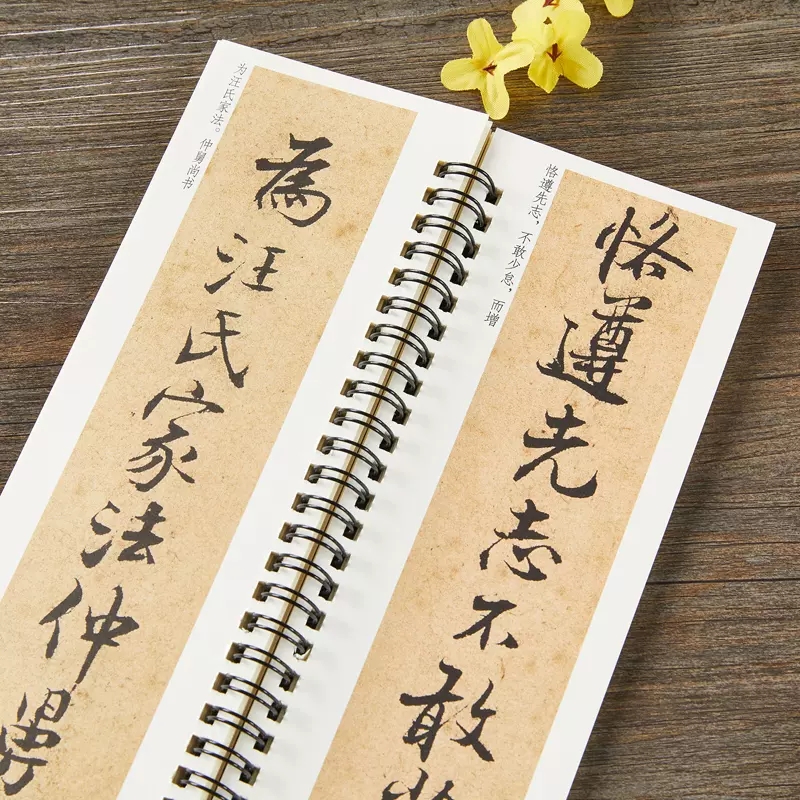 恪遵先志不敢
恪遵先志，不敢少怠，而增
為汪氏家法仲舅
为汪氏家法。仲舅尚书